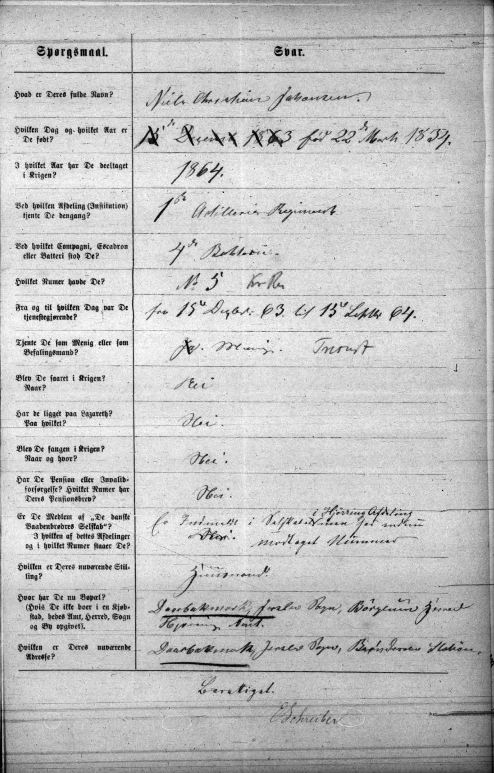 Spørgsmaal. Svar.
Hvad er Deres fulde Navn? Niels Christian Johansen.
Hvilken Dag og hvilket Aar er De født? født 22de Marts 1834.
I hvilket Aar har De deeltaget i Krigen? 1864.
Ved hvilken Afdeling (Institution) tjente De dengang? 1ste Artilleri Regiment
Ved hvilket Compagni, Escadron eller Batteri stod De? 4de Batteri.
Hvilket Numer havde De? No 5
Fra og til hvilken Dag var De tjenestegjørende? fra 15de Decbr. 63 til 15de Septbr 64.
Tjente De som Menig eller som Befalingsmand? Menig.
Blev De saaret i Krigen? Naar? Nei
Har de ligget paa Lazareth? Paa hvilket? Nei.
Blev De fangen i Krigen? Naar og hvor? Nei.
Har De Pension eller Invalidforsørgelse? Hvilket Numer har Deres Pensionsbrev? Nei.
Er De Medlem af „De danske Vaabenbrødres Selskab"? I hvilken af dettes Afdelinger og i hvilket Numer staaer De? Er Indmeldt i Selskabet i Hjørring Afdeling men har endnu modtaget Nummer
Hvilken er Deres nuværende Stilling? Huusmand.
Hvor har De nu Bopæl? (Hvis De ikke boer i en Kjøbstad, bedes Amt, Herred, Sogn og By opgivet). Sogn, Børglum Herred Hjørring Amt.
Hvilken er Deres nuværende Adresse? Sogn, Brønderslev Station.
Berettiget.